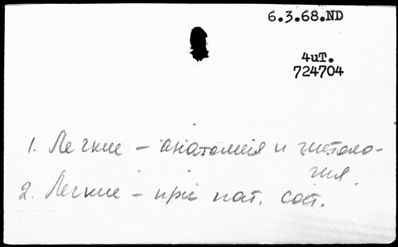 6.3.68.ND
4иТ.
724704
1. Легкие – анатомия и гистоло-
гия
2. Легкие – при пат. сост.